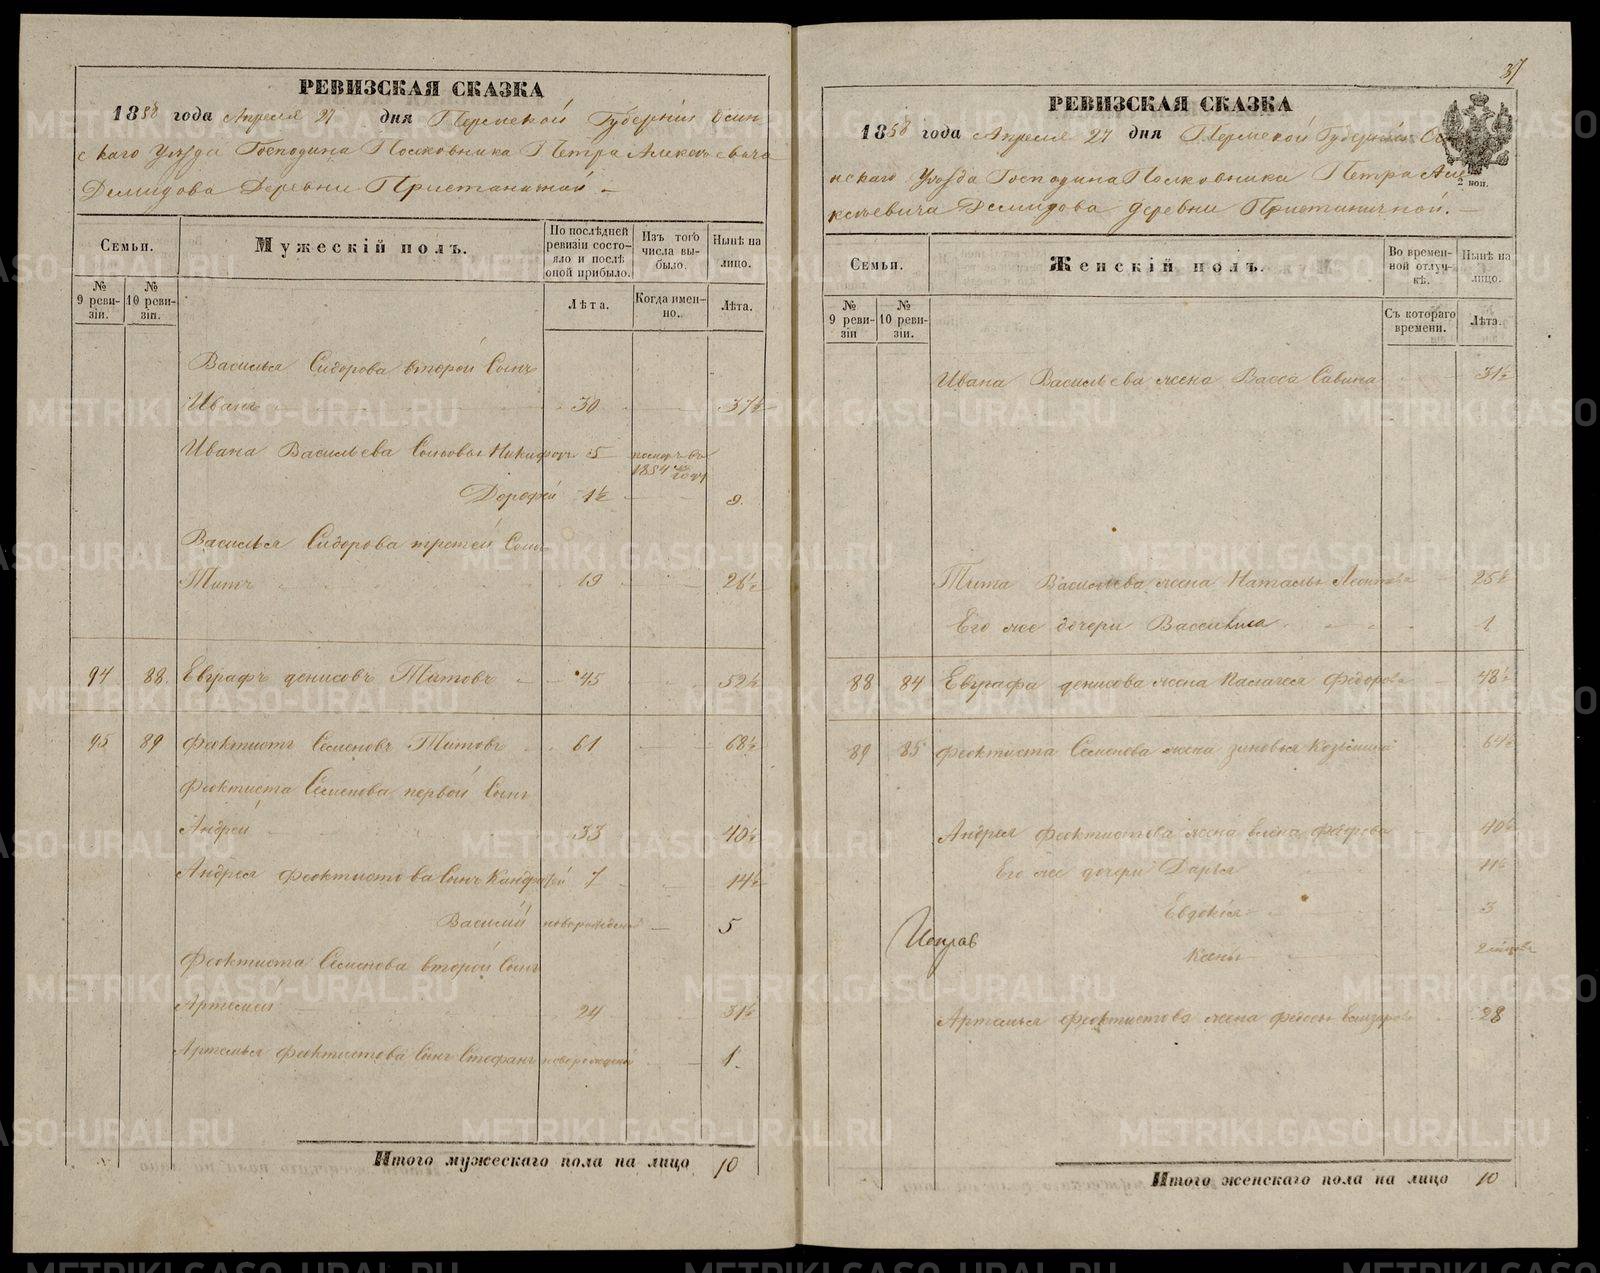 РЕВИЗСКАЯ СКАЗКА
1858 года Апреля 27 дня Пермской Губернии Осин-
скаго Уезда Господина Полковника Петра Алексеевича
Демидова Деревни Пристаничной
Семьи.
Мужескій полъ.
По послѣдней ревизіи состояло и послѣ оной прибыло.
Изъ того числа выбыло.
Нынѣ на лицо.
№ 9 ревизіи.
№ 10 ревизіи.
Лѣта.
Когда именно.
Лѣта.
Василья Сидорова второй Сынъ
Иванъ 30 37½
Ивана Васильева Сыновья Никифоръ 5 1854
Дорофей 1½ 9
Василья Сидорова третей Сынъ
Титъ 19 26½
94 88. Евграфъ денисовъ Титовъ 45 52½
95 89 Феоктистъ Семеновъ Титовъ 61 68½
Феоктиста Семенова первой Сынъ
Андрей 33 40½
Андрея Феоктистова Сынъ 7 14½
Василій новорожденной 5
Феоктиста Семенова второй Сынъ
Артемей 24 31½
Артемья Феоктистова Сынъ Стефанъ новорожденой 1.
Итого мужескаго пола на лицо 10
37
РЕВИЗСКАЯ СКАЗКА
1858 года Апреля 27 дня Пермской Губернии
Уезда Господина Полковника Петра Але
ксеевича Демидова деревни Пристаничной.
2 коп.
Семьи.
Женскій полъ.
Во временной отлучкѣ.
Нынѣ на лицо.
№ 9 ревизіи
№ 10 ревизіи.
Съ котораго времени.
Лѣта.
Ивана Васильева жена Васса Савина 31½
Тита Васильева жена Наталья 25½
Его же дочери 1
88 84 Евграфа денисова жена Палагея Федорова 48½
89 85 Феоктиста Семенова жена Зиновья 64½
Андрея Феоктистова жена Елена 40½
Его же дочери Дарья 11½
Евдокія 3
Артемья Феоктистова жена 28
Итого женскаго пола на лицо 10
METRIKI.GASO-URAL.RU